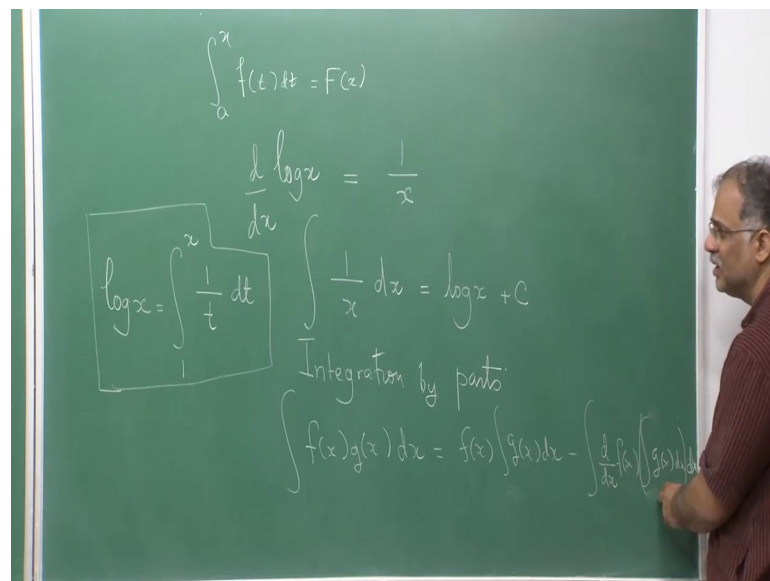 ∫_a^x f(t) dt = F(x)
d/dx log x = 1/x
log x = ∫_1^x 1/t dt
∫ 1/x dx = log x + C
Integration by parts
∫ f(x) g(x) dx = f(x) ∫ g(x) dx - ∫ d/dx f(x) (∫ g(x) dx) dx